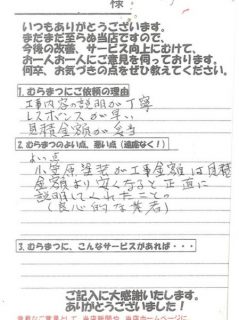 様
いつもありがとうございます。
まだまだ至らぬ当店ですので、
今後の改善、サービス向上にむけて、
お一人お一人にご意見を伺っております。
何卒、お気づきの点をぜひ教えてください。
1. むらまつにご依頼の理由
工事内容の説明が丁寧
レスポンスが早い
見積金額が妥当
2. むらまつのよい点、悪い点（遠慮なく！）
よい点
小笠原塗装が工事金額は見積
金額より安くなると正直に
説明してくれたこと。
（良心的な業者）
3. むらまつに、こんなサービスがあれば・・・
ご記入に大感謝いたします。
ありがとうございました！
貴重なご意見として、当店新聞や、当店ホームページに